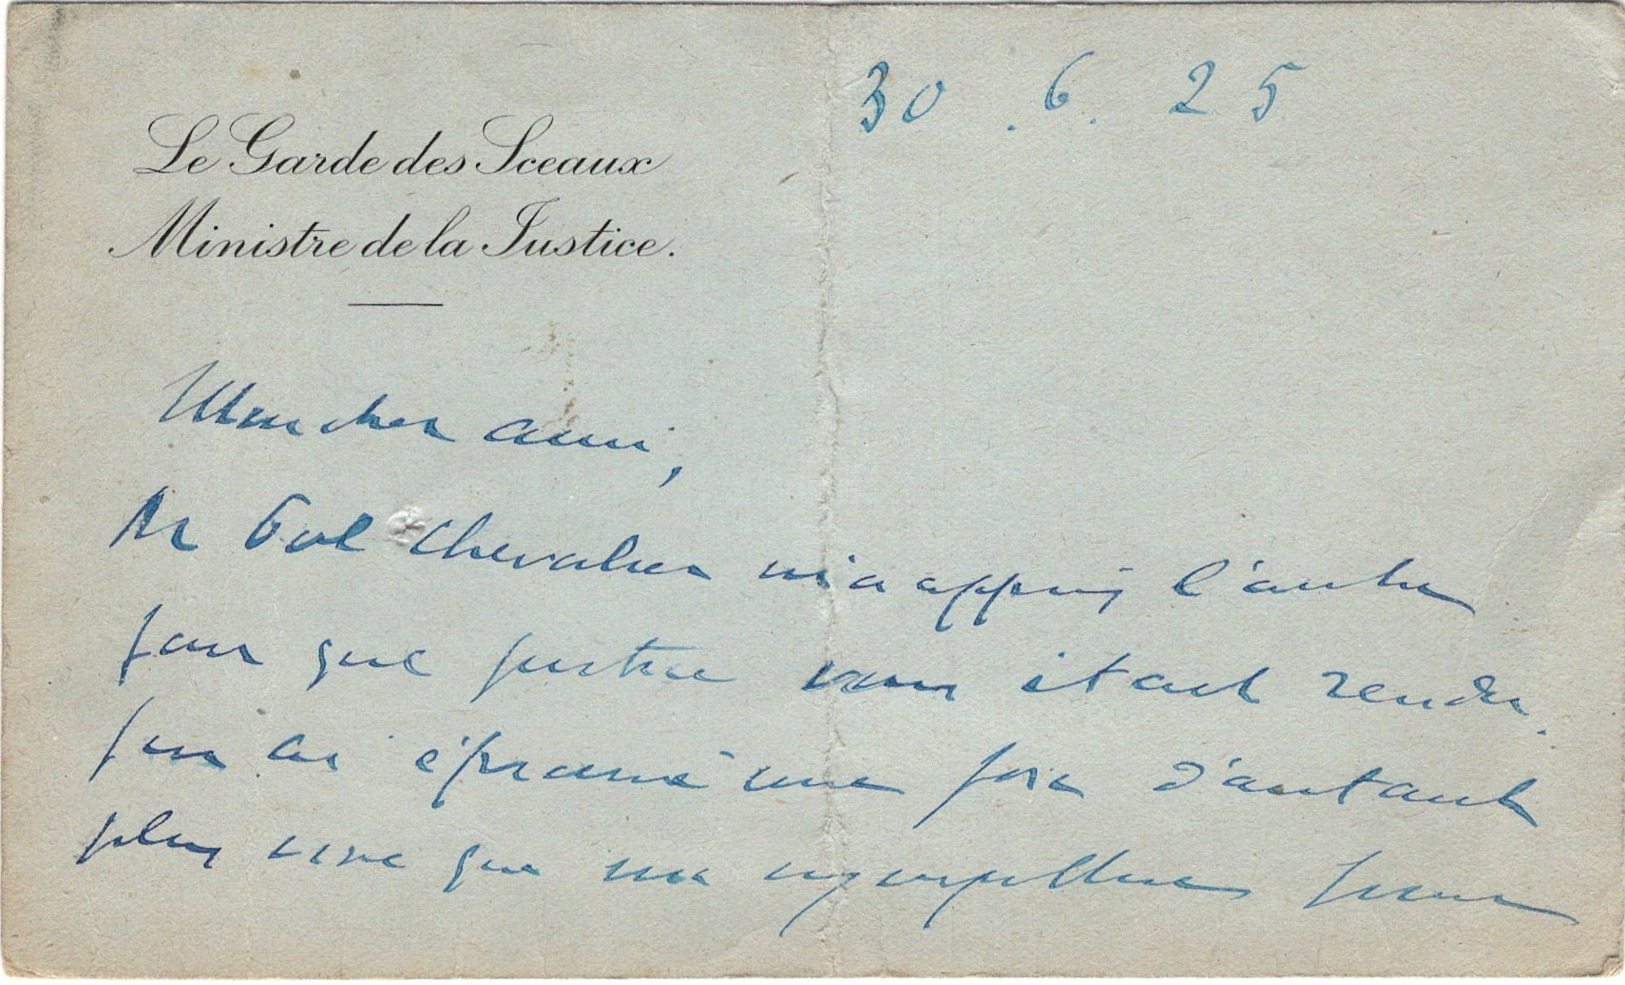 30.6.25
Le Garde des Sceaux
Ministre de la Justice.
Mon cher ami,
Mr Gal Chevalier m'a appris l'autre
jour que justice vous était rendue.
J'en ai éprouvé une joie d'autant
plus vive que ma sympathie pour